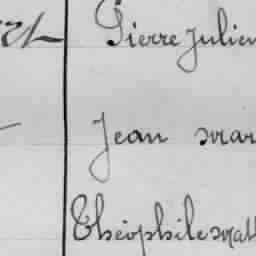 Pierre Julien
Jean Mar
Théophile Mat